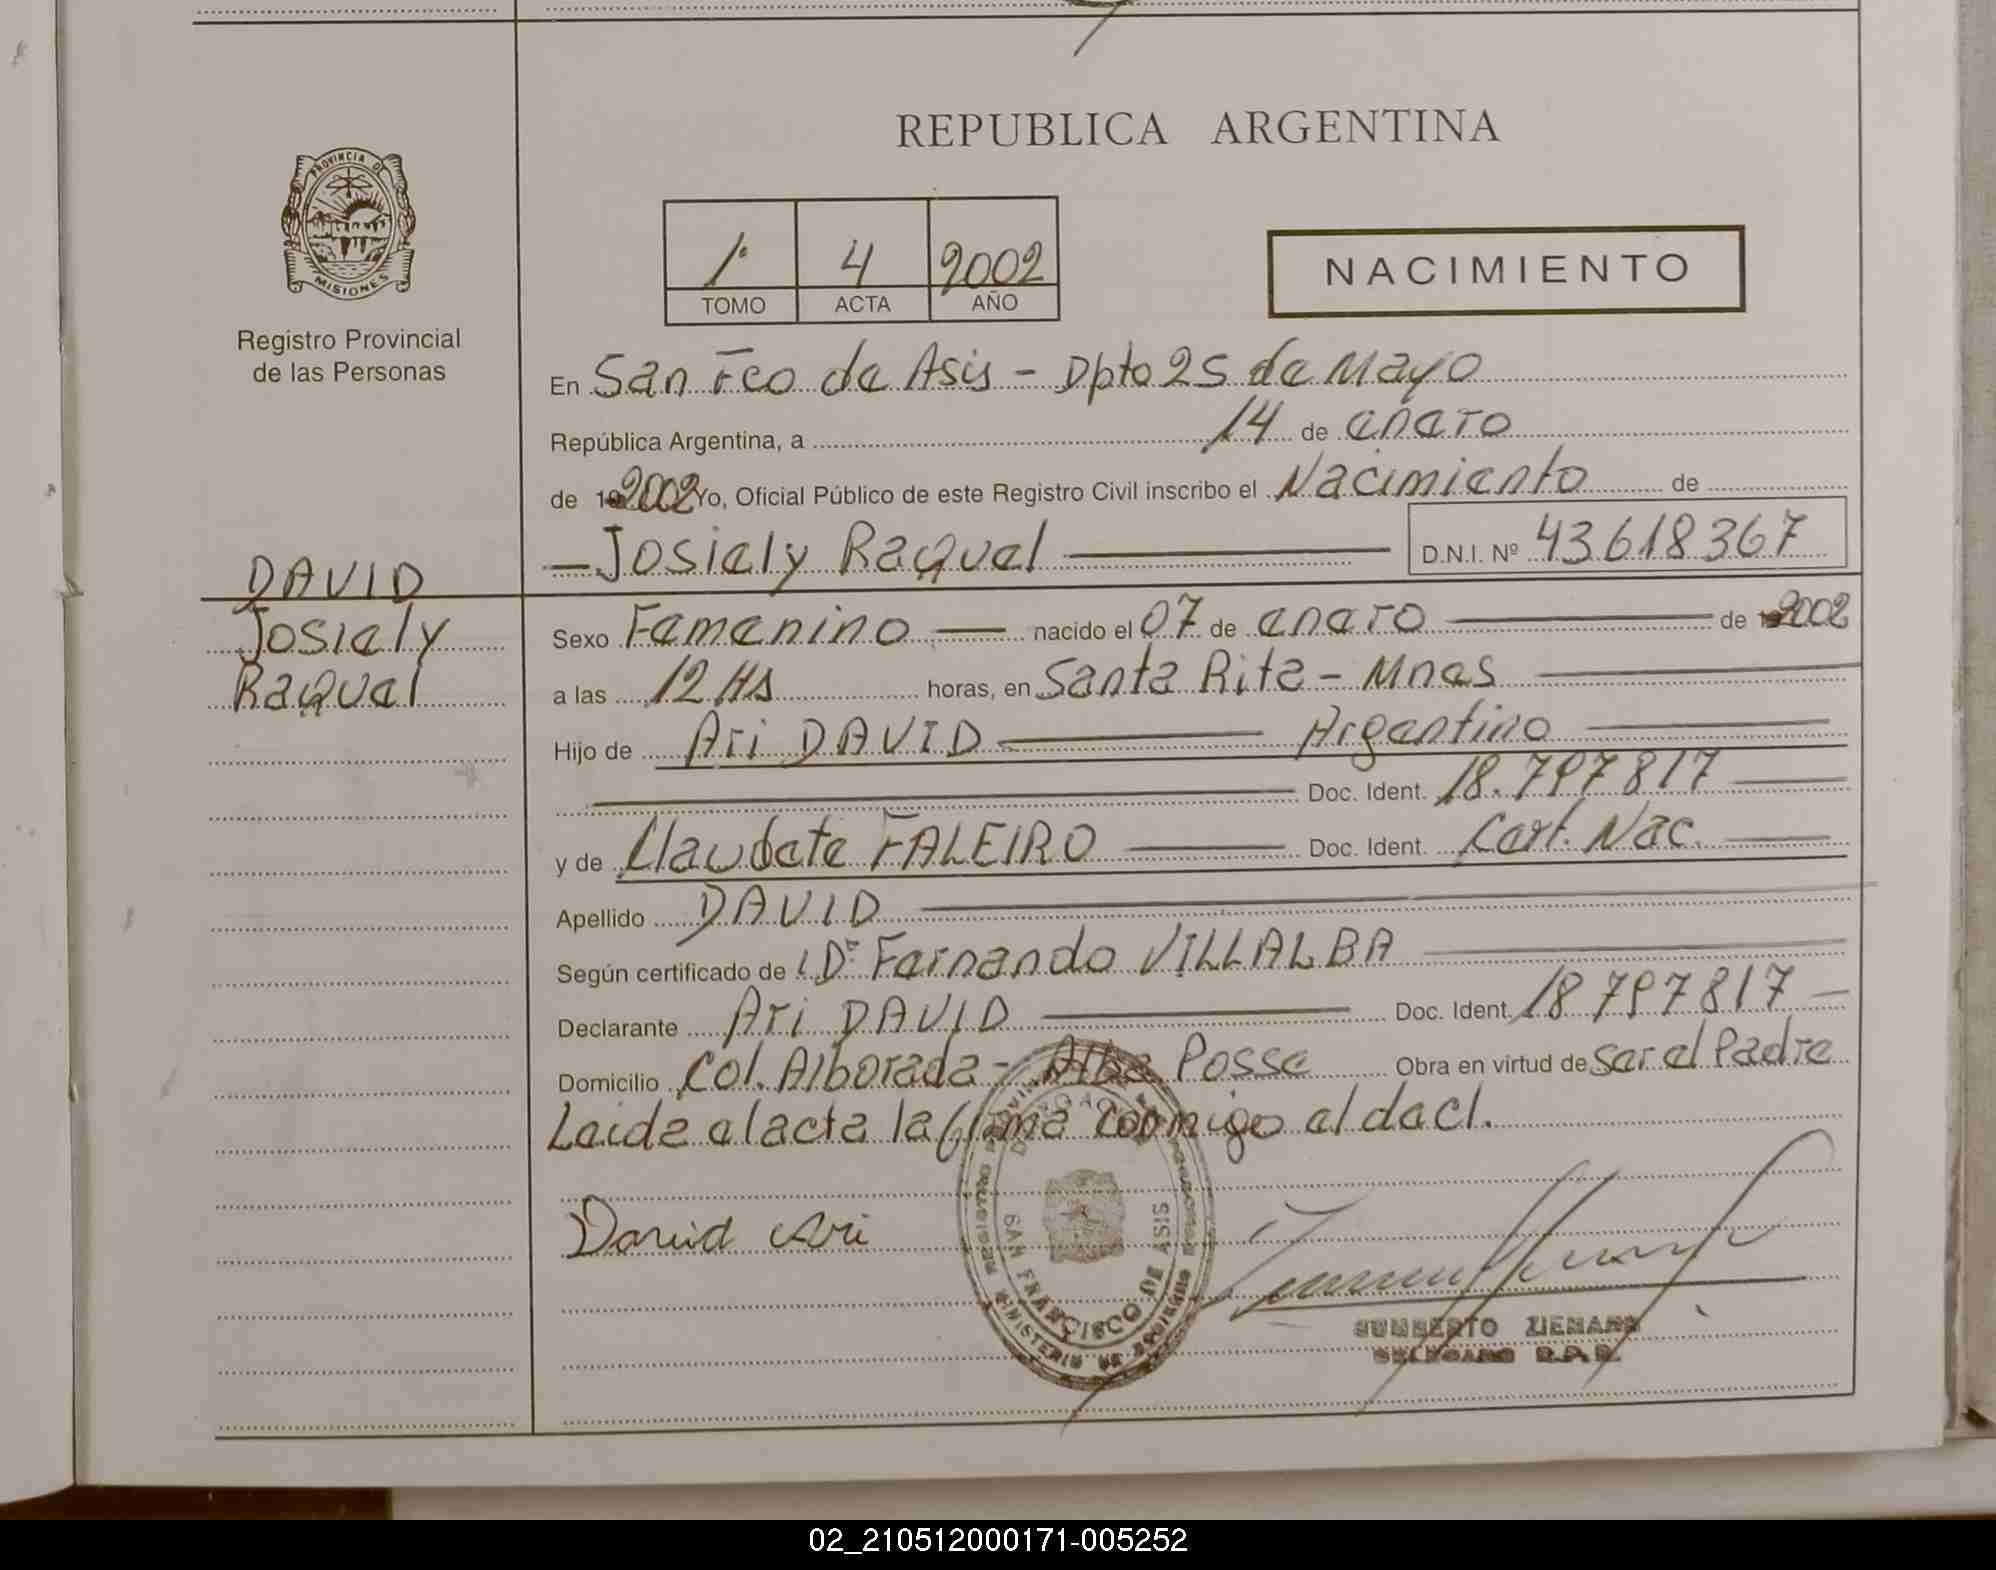 REPUBLICA ARGENTINA
PROVINCIA DE
MISIONES
Registro Provincial
de las Personas
1º 4 2002
TOMO ACTA AÑO
NACIMIENTO
En San Fco de Asis - Dpto 25 de Mayo
República Argentina, a 14 de enero
de 19 2002 Yo, Oficial Público de este Registro Civil inscribo el Nacimiento de
Josiely Raquel D.N.I. Nº 43618367
DAVID
Josiely
Raquel
Sexo Femenino nacido el 07 de enero de 19 2002
a las 12 Hs horas, en Santa Rita - Mnes
Hijo de Ari DAVID Argentino
Doc. Ident. 18.797817
y de Claudete FALEIRO Doc. Ident. Cert. Nac.
Apellido DAVID
Según certificado de Dr Fernando VILLALBA
Declarante Ari DAVID Doc. Ident. 18797817
Domicilio Col. Alborada - Alba Posse Obra en virtud de ser el Padre
Leida el acta la firma conmigo el decl.
David Ari
SAN FRANCISCO DE ASIS
MINISTERIO DE GOBIERNO
HUMBERTO ZIEMANN
DELEGADO R.P.P.
02_210512000171-005252